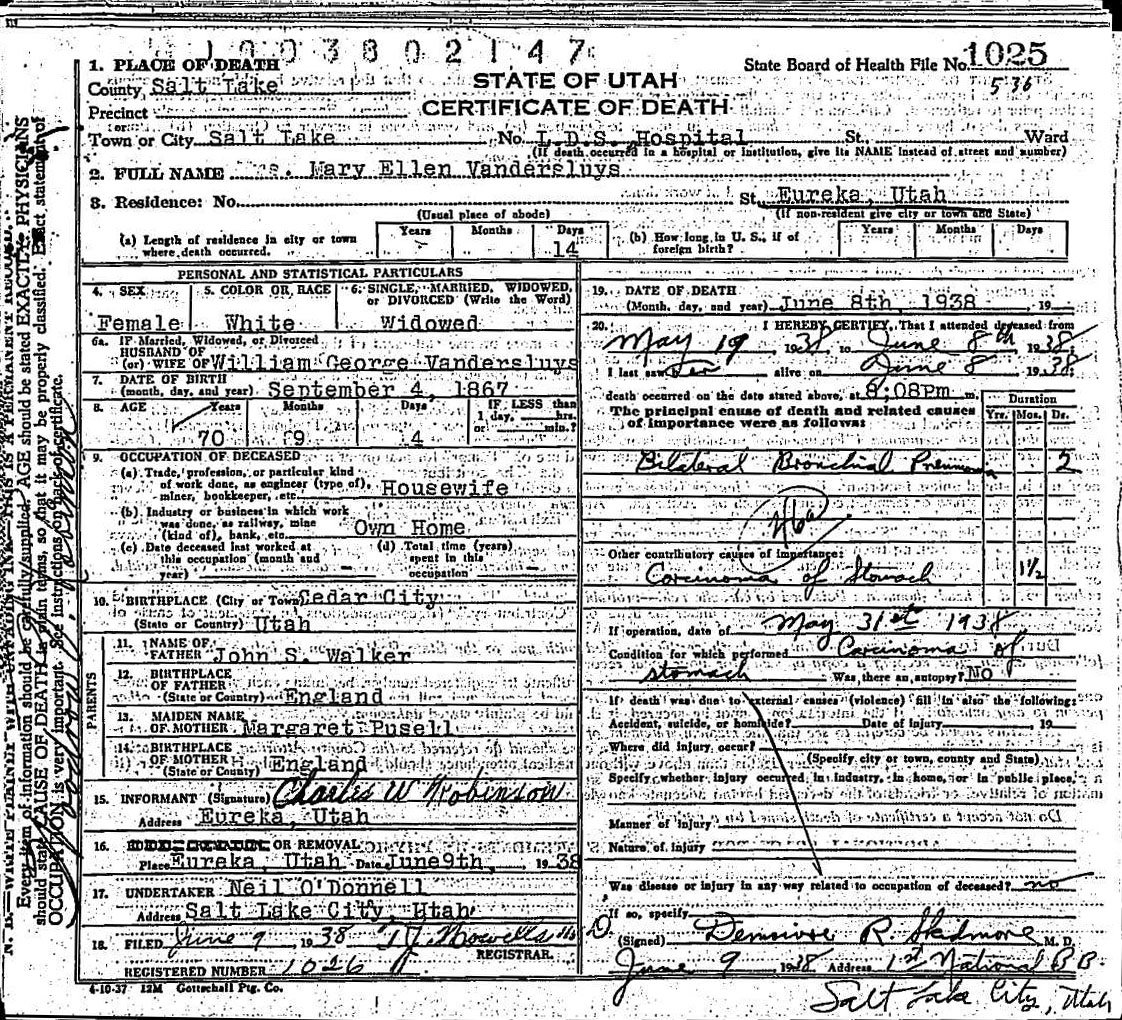 1003802147
1. PLACE OF DEATH
State Board of Health File No. 1025
County Salt Lake
STATE OF UTAH
536
Precinct
CERTIFICATE OF DEATH
or
Town or City Salt Lake No. L.D.S. Hospital St. Ward
(If death occurred in a hospital or institution, give its NAME instead of street and number)
2. FULL NAME s. Mary Ellen Vandersluys
3. Residence: No. St. Eureka, Utah
(Usual place of abode) (If non-resident give city or town and State)
(a) Length of residence in city or town where death occurred. Years Months Days 14
(b) How long in U. S., if of foreign birth? Years Months Days
PERSONAL AND STATISTICAL PARTICULARS
4. SEX Female
5. COLOR OR RACE White
6. SINGLE, MARRIED, WIDOWED, or DIVORCED (Write the Word) Widowed
6a. IF Married, Widowed, or Divorced
HUSBAND OF
(or) WIFE OF William George Vandersluys
7. DATE OF BIRTH
(month, day, and year) September 4, 1867
8. AGE Years Months Days IF LESS than
1 day, hrs.
or min.?
70 9 4
9. OCCUPATION OF DECEASED
(a) Trade, profession, or particular kind
of work done, as engineer (type of),
miner, bookkeeper, etc. Housewife
(b) Industry or business in which work
was done, as railway, mine
(kind of), bank, etc. Own Home
(c) Date deceased last worked at
this occupation (month and
year)
(d) Total time (years)
spent in this
occupation
10. BIRTHPLACE (City or Town) Cedar City
(State or Country) Utah
PARENTS
11. NAME OF
FATHER John S. Walker
12. BIRTHPLACE
OF FATHER
(State or Country) England
13. MAIDEN NAME
OF MOTHER Margaret Pusell
14. BIRTHPLACE
OF MOTHER
(State or Country) England
15. INFORMANT (Signature) Charles W Robinson
Address Eureka, Utah
16. OR REMOVAL
Place Eureka, Utah Date June 9th, 1938
17. UNDERTAKER Neil O'Donnell
Address Salt Lake City, Utah
18. FILED June 9, 1938
REGISTRAR.
REGISTERED NUMBER 1026
4-10-37 12M Gottschall Ptg. Co.
19. DATE OF DEATH
(Month, day, and year) June 8th, 1938 19
20. I HEREBY CERTIFY, That I attended deceased from
May 19 1938 to June 8th 1938
I last saw her alive on June 8 1938
death occurred on the date stated above, at 8:08pm m.
The principal cause of death and related causes
of importance were as follows:
Duration
Yrs. Mos. Ds.
Bilateral Bronchial Pneumonia 2
46a
Other contributory causes of importance:
Carcinoma of Stomach 1½
If operation, date of May 31st 1938
Condition for which performed Carcinoma of
stomach Was there an autopsy? No
If death was due to external causes (violence) fill in also the following:
Accident, suicide, or homicide? Date of injury 19
Where did injury occur?
(Specify city or town, county and State)
Specify whether injury occurred in industry, in home, or in public place.
Manner of injury
Nature of injury
Was disease or injury in any way related to occupation of deceased? no
If so, specify
(Signed) R. Skidmore M. D.
June 9 1938 Address 1st National B B.
Salt Lake City, Utah
N. B.—WRITE PLAINLY WITH UNFADING INK—THIS IS A PERMANENT RECORD.
Every item of information should be carefully supplied. AGE should be stated EXACTLY. PHYSICIANS
should state CAUSE OF DEATH in plain terms, so that it may be properly classified. Exact statement of
OCCUPATION is very important. See instructions on back of certificate.